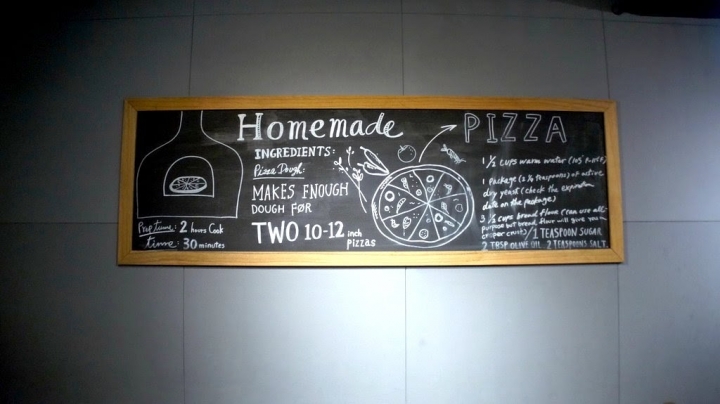 Homemade PIZZA
INGREDIENTS:
Pizza Dough:
MAKES ENOUGH
DOUGH FOR
TWO 10-12 inch
pizzas
Prep time: 2 hours Cook
time: 30 minutes
1 ½ cups warm water
1 package (2 ¼ teaspoons) of active
dry yeast (check the
date on the package)
3 ½ cups bread flour (can use all-
purpose but bread flour will give you
crisper crust) / 1 TEASPOON SUGAR
2 TBSP OLIVE OIL 2 TEASPOONS SALT